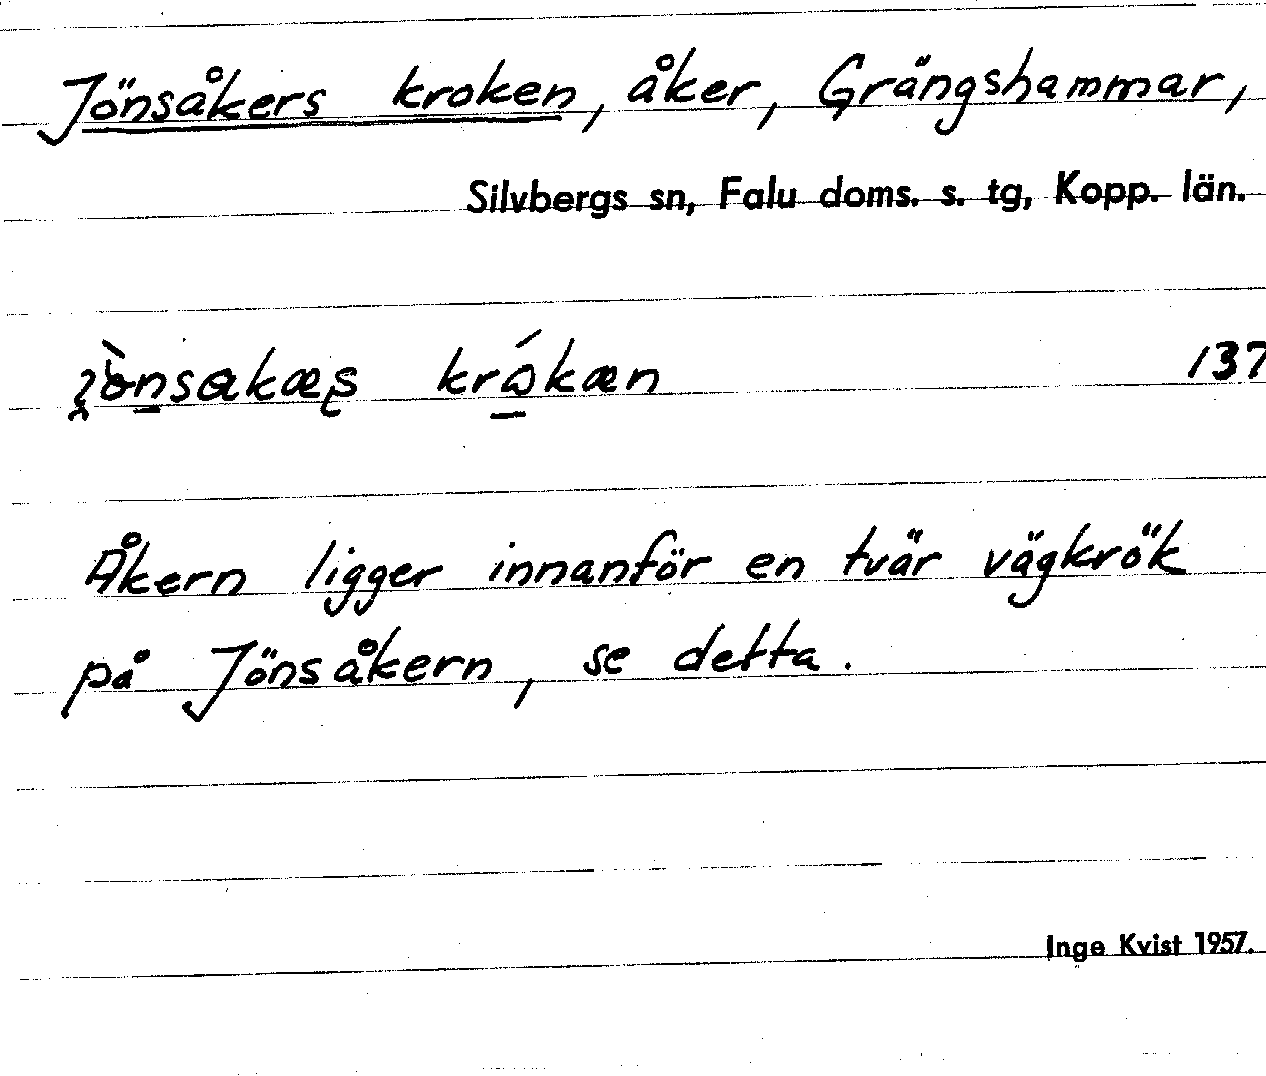 Jönsåkers kroken, åker, Grängshammar,
Silvbergs sn, Falu doms. s. tg, Kopp. län.
137
Åkern ligger innanför en tvär vägkrök
på Jönsåkern, se detta.
Inge Kvist 1957.